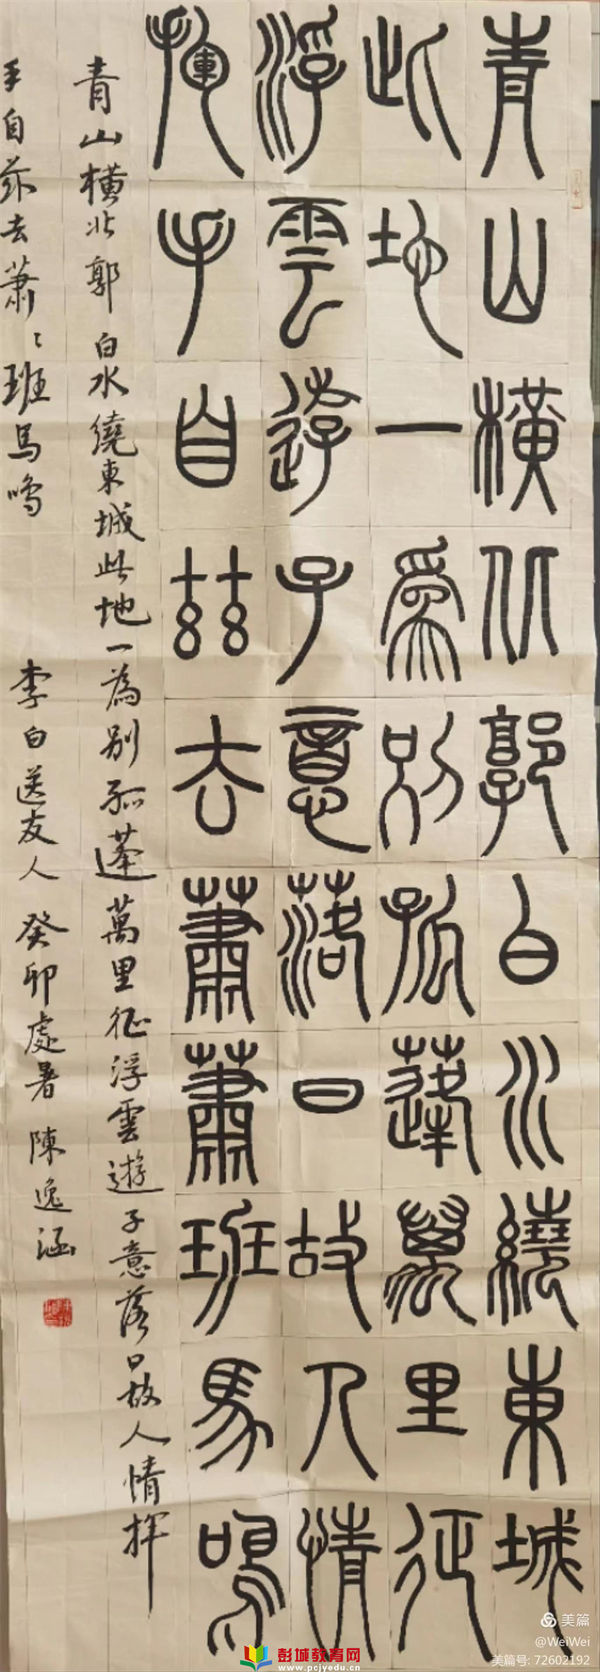 青山橫北郭白水繞東城
此地一為別孤蓬萬里征
浮雲遊子意落日故人情
揮手自茲去蕭蕭班馬鳴
青山橫北郭白水繞東城此地一為別孤蓬萬里征浮雲遊子意落日故人情揮
手自茲去蕭〻班馬鳴 李白送友人 癸卯處暑 陳逸涵
美篇
@WeiWei
美篇号: 72602192
彭城教育网
www.pcjyedu.cn